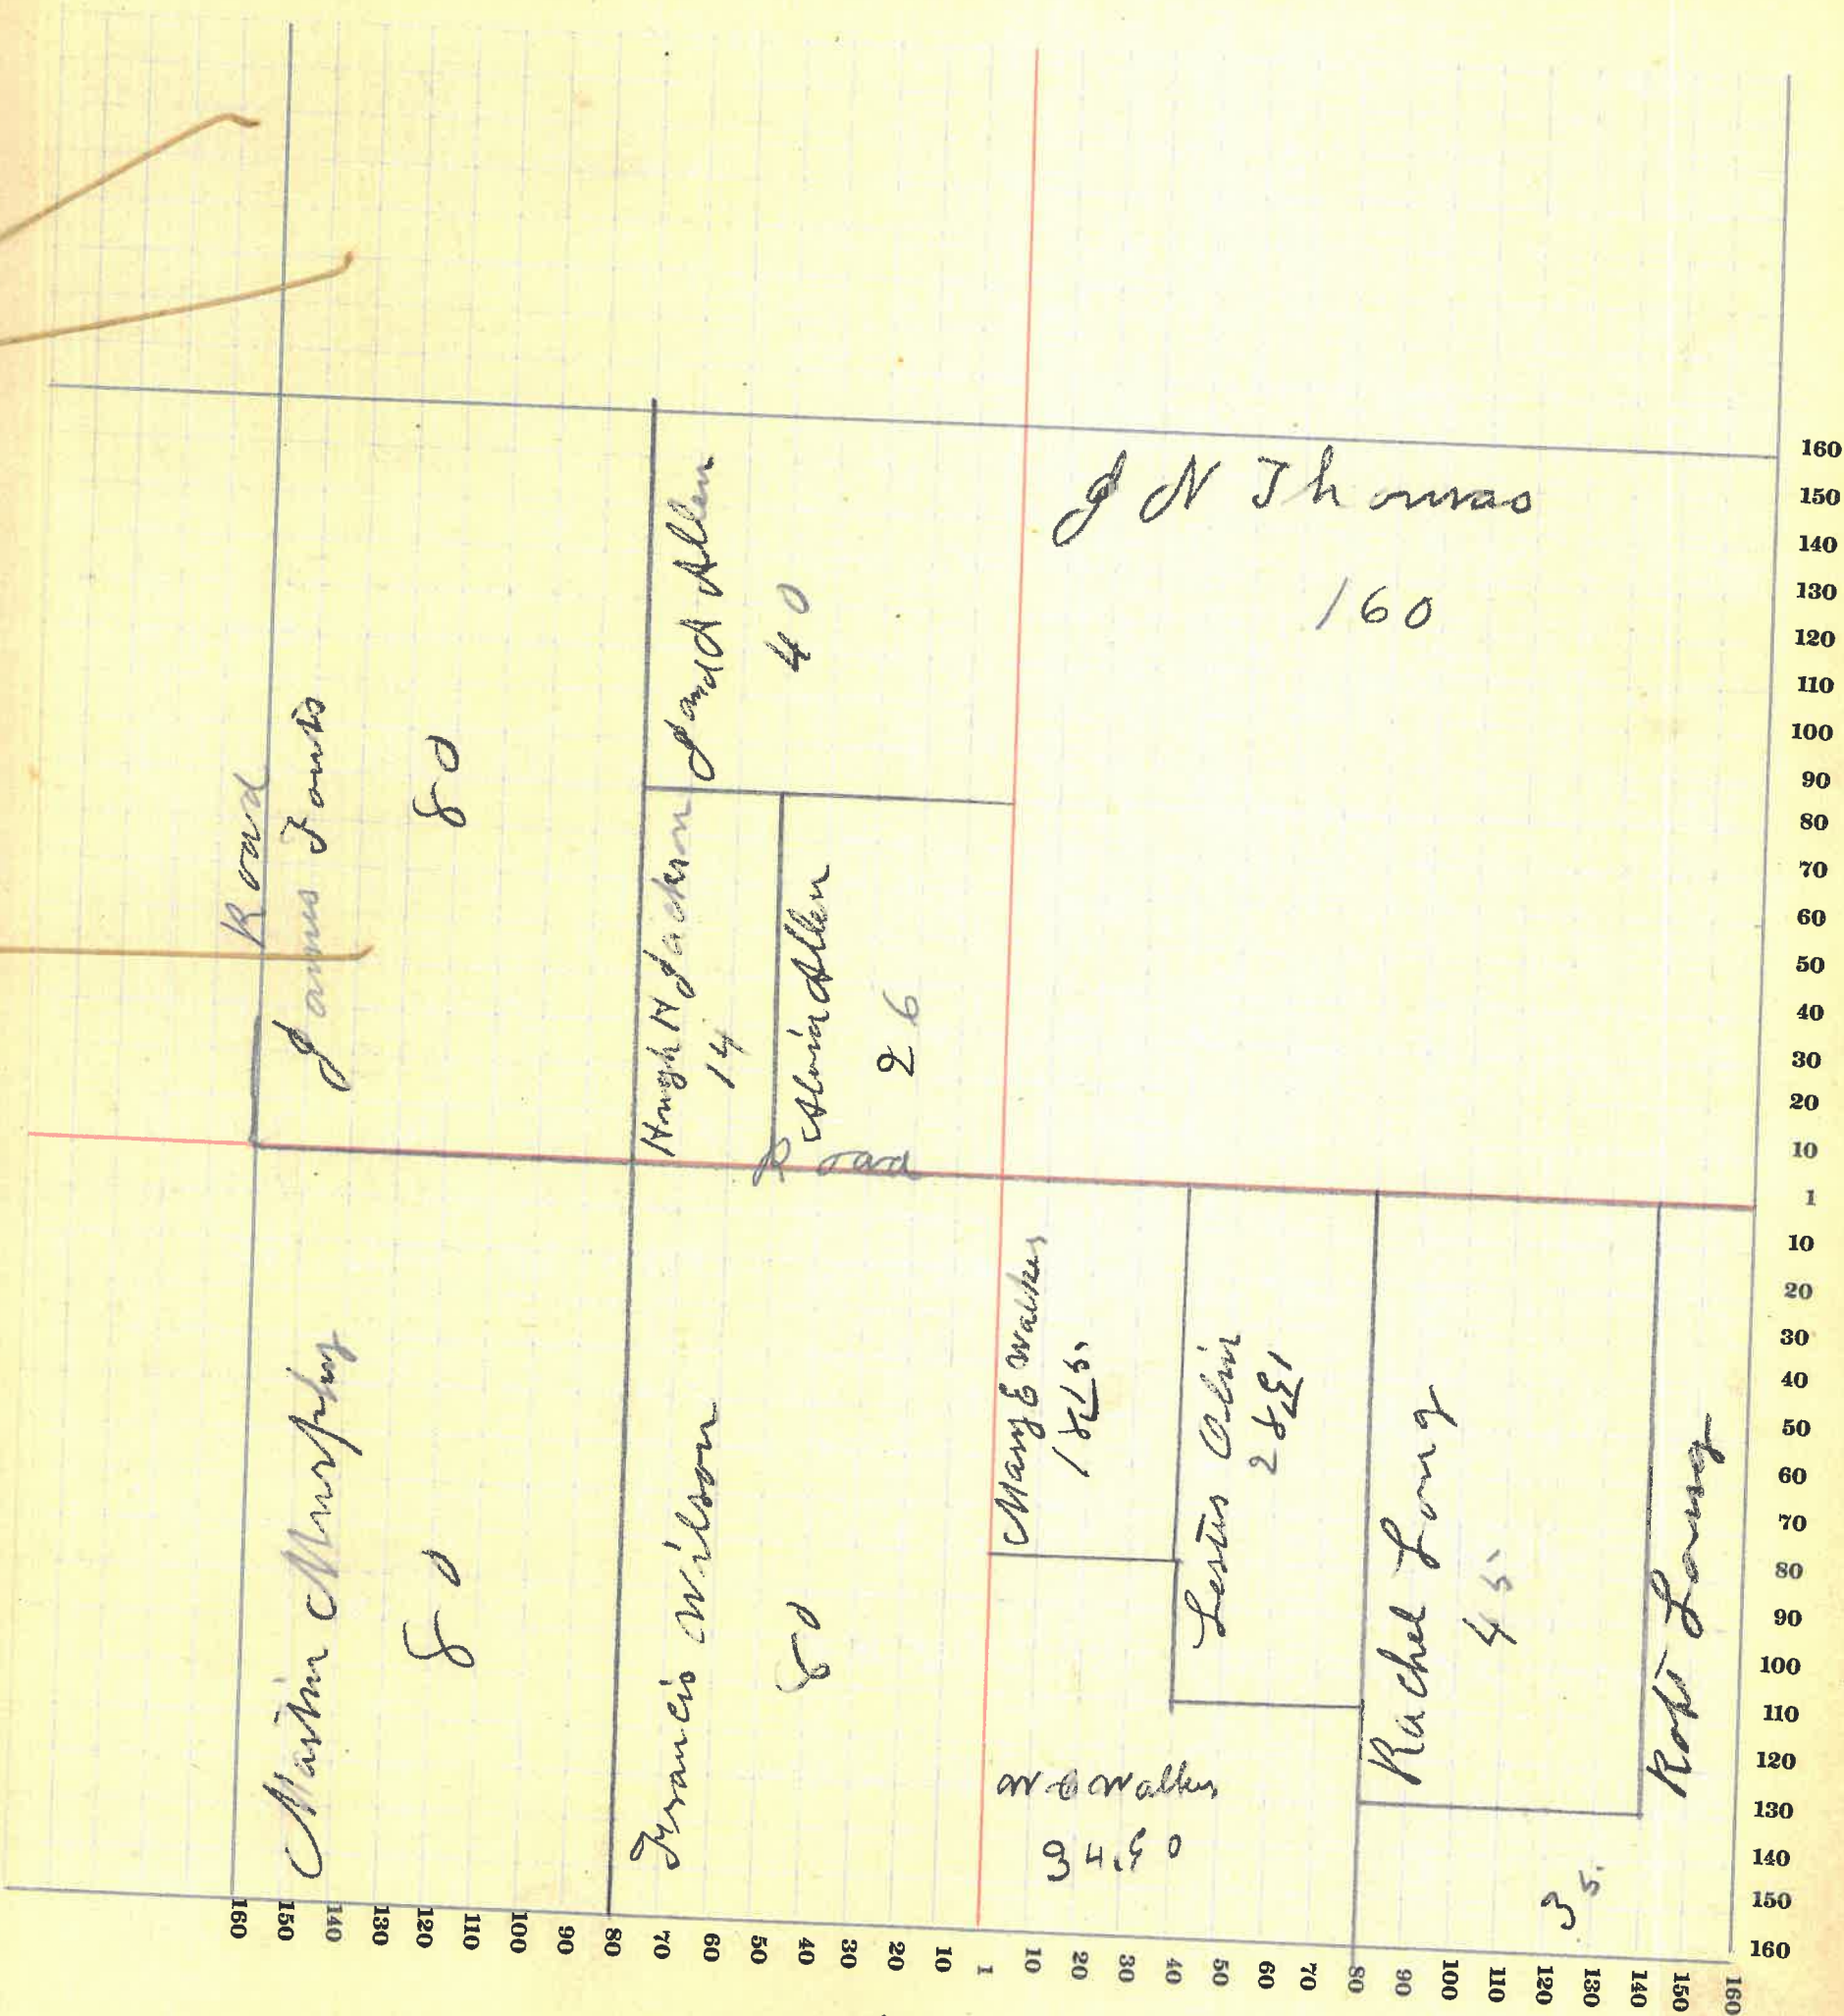 Road
James Fouts
80
J and A Allen
40
Hugh H Jackson
14
Alvin Allen
26
Road
J N Thomas
160
Martin Murphy
80
Francis Wilson
80
Mary E Walker
Rachel Long
45
Robt Long
35.
W C Walker
34.50
160
150
140
130
120
110
100
90
80
70
60
50
40
30
20
10
1
10
20
30
40
50
60
70
80
90
100
110
120
130
140
150
160
160
150
140
130
120
110
100
90
80
70
60
50
40
30
20
10
1
10
20
30
40
50
60
70
80
90
100
110
120
130
140
150
160